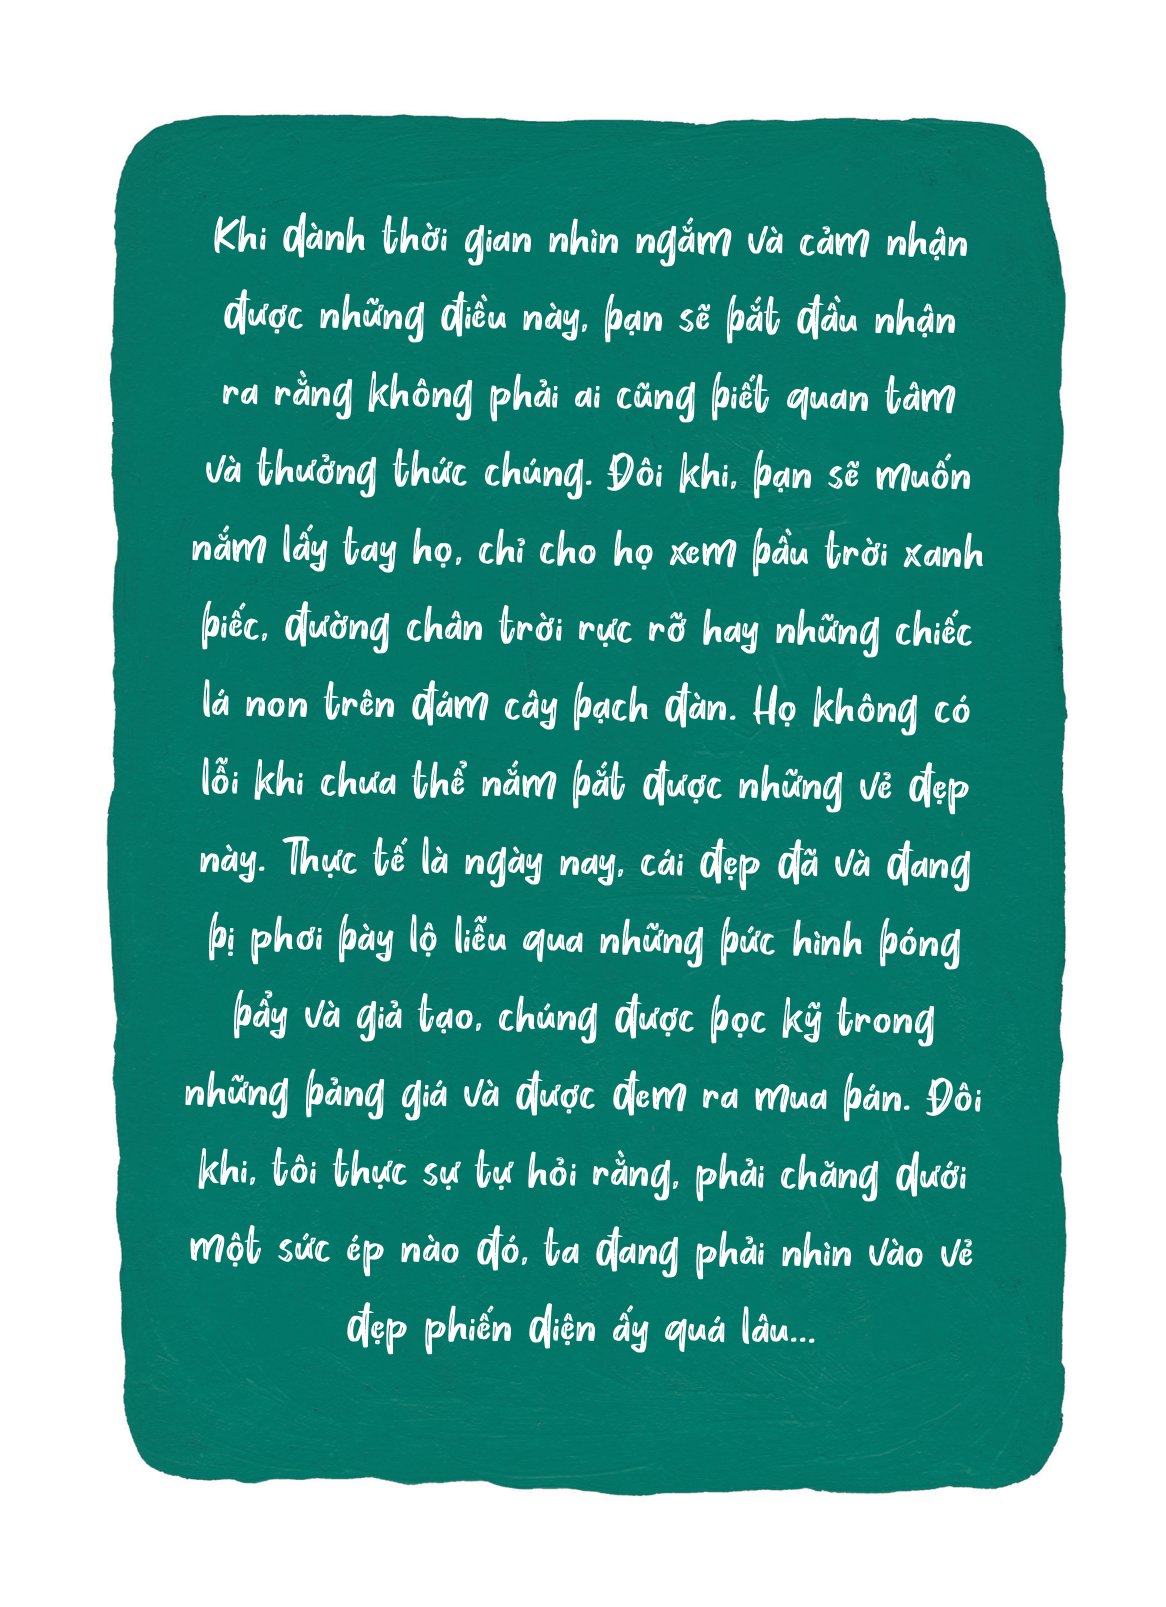 Khi dành thời gian nhìn ngắm và cảm nhận
được những điều này, bạn sẽ bắt đầu nhận
ra rằng không phải ai cũng biết quan tâm
và thưởng thức chúng. Đôi khi, bạn sẽ muốn
nắm lấy tay họ, chỉ cho họ xem bầu trời xanh
biếc, đường chân trời rực rỡ hay những chiếc
lá non trên đám cây bạch đàn. Họ không có
lỗi khi chưa thể nắm bắt được những vẻ đẹp
này. Thực tế là ngày nay, cái đẹp đã và đang
bị phơi bày lộ liễu qua những bức hình bóng
bẩy và giả tạo, chúng được bọc kỹ trong
những bảng giá và được đem ra mua bán. Đôi
khi, tôi thực sự tự hỏi rằng, phải chăng dưới
một sức ép nào đó, ta đang phải nhìn vào vẻ
đẹp phiến diện ấy quá lâu...